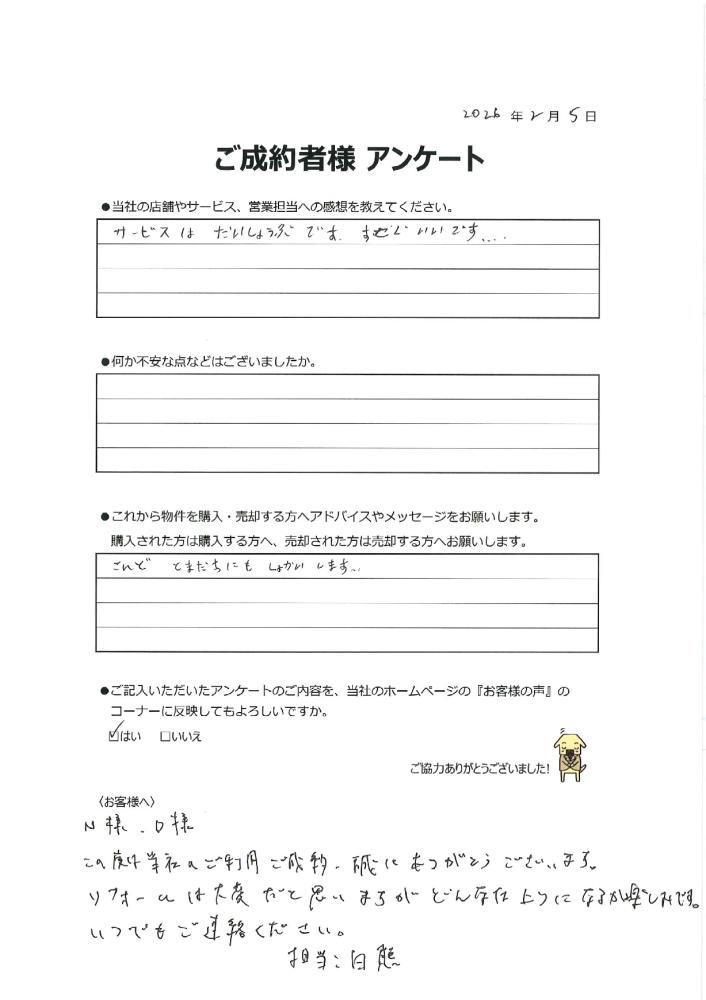 2026年2月5日
ご成約者様 アンケート
●当社の店舗やサービス、営業担当への感想を教えてください。
サービスは だいしょうぶです. すぜじいいです....
●何か不安な点などはございましたか。
●これから物件を購入・売却する方へアドバイスやメッセージをお願いします。
購入された方は購入する方へ、売却された方は売却する方へお願いします。
こんど ともだちにも しょかいします...
●ご記入いただいたアンケートのご内容を、当社のホームページの『お客様の声』の
コーナーに反映してもよろしいですか。
☑はい □いいえ
ご協力ありがとうございました!
〈お客様へ〉
N様.D様
この度は当社のご利用ご成約、誠にありがとうございます。
リフォームは大変だと思いますがどんな仕上りになるか楽しみです。
いつでもご連絡ください。
担当:白